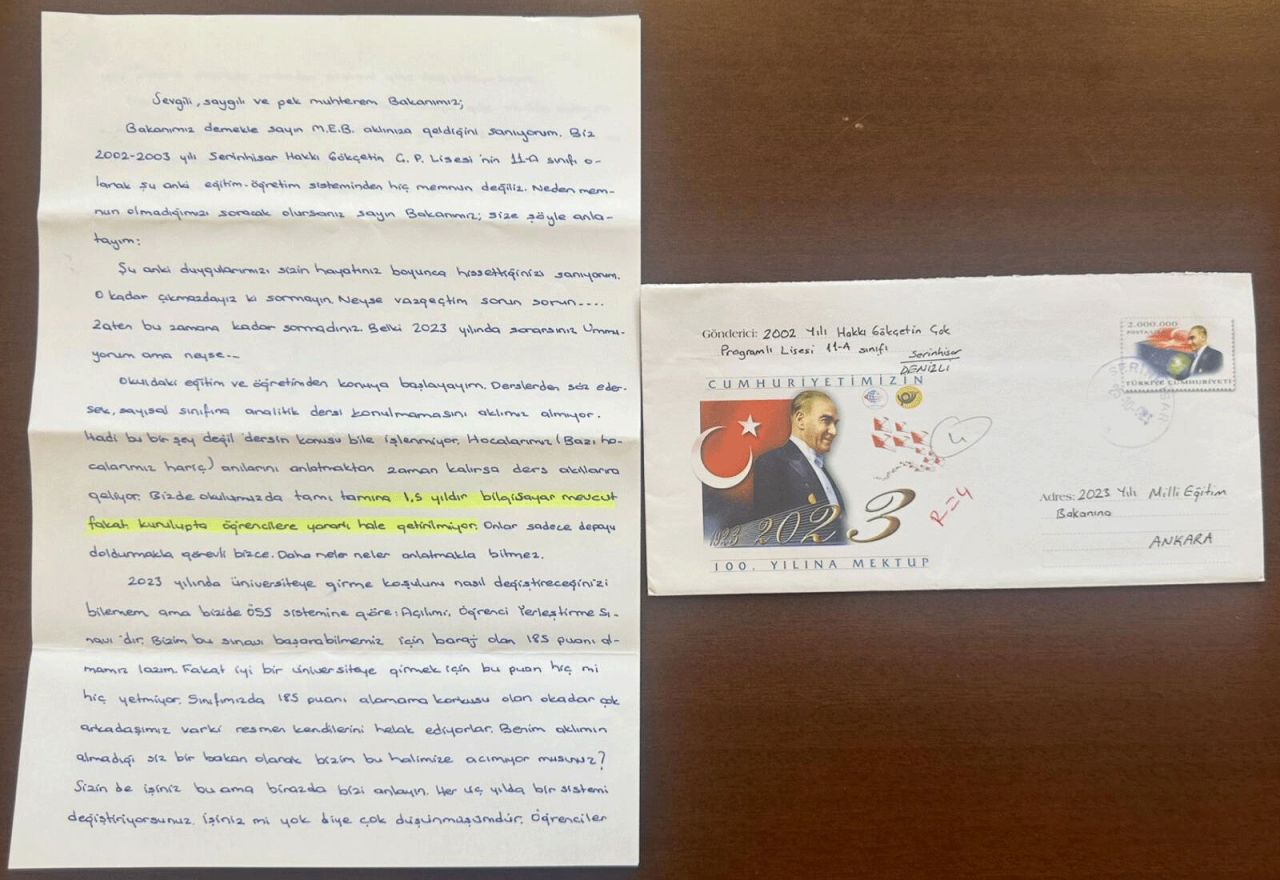 Sevgili, saygılı ve pek muhterem Bakanımız;
Bakanımız demekle sayın M.E.B. aklınıza geldiğini sanıyorum. Biz
2002-2003 yılı Serinhisar Hakkı Gökçetin Ç. P. Lisesi 'nin 11-A sınıfı o-
larak şu anki eğitim-öğretim sisteminden hiç memnun değiliz. Neden mem-
nun olmadığımızı soracak olursanız sayın Bakanımız; size şöyle anla-
tayım:
Şu anki duygularımızı sizin hayatınız boyunca hissettiğinizi sanıyorum.
O kadar çıkmazdayız ki sormayın. Neyse vazgeçtim sorun sorun....
Zaten bu zamana kadar sormadınız. Belki 2023 yılında sorarsınız Ummu-
yorum ama neyse...
Okuldaki eğitim ve öğretimden konuya başlayayım. Derslerden söz eder-
sek, sayısal sınıfına analitik dersi konulmamasını aklımız almıyor.
Hadi bu bir şey değil dersin konusu bile işlenmiyor. Hocalarımız (Bazı ho-
calarımız hariç) anılarını anlatmaktan zaman kalırsa ders akıllarına
geliyor. Bizde okulumuzda tamı tamına 1,5 yıldır bilgisayar mevcut
fakat kurulupta öğrencilere yararlı hale getirilmiyor. Onlar sadece depoyu
doldurmakla görevli bizce. Daha neler neler anlatmakla bitmez.
2023 yılında üniversiteye girme koşulunu nasıl değiştireceğinizi
bilemem ama bizide ÖSS sistemine göre: Açılımı, Öğrenci Yerleştirme Sı-
navı 'dır. Bizim bu sınavı başarabilmemiz için baraj olan 185 puanı al-
mamız lazım. Fakat iyi bir üniversiteye girmek için bu puan hiç mi
hiç yetmiyor. Sınıfımızda 185 puanı alamama korkusu olan okadar çok
arkadaşımız varki resmen kendilerini helak ediyorlar. Benim aklımın
almadığı siz bir bakan olarak bizim bu halimize acımıyor musunuz?
Sizin de işiniz bu ama birazda bizi anlayın. Her üç yılda bir sistemi
değiştiriyorsunuz. İşiniz mi yok diye çok düşünmüşümdür. Öğrenciler
Gönderici: 2002 Yılı Hakkı Gökçetin Çok
Programlı Lisesi 11-A sınıfı Serinhisar
DENİZLİ
CUMHURİYETİMİZİN
1923 2023
100. YILINA MEKTUP
4
R=4
2.000.000
POSTA
TÜRKİYE CUMHURİYETİ
Adres: 2023 Yılı Milli Eğitim
Bakanına
ANKARA